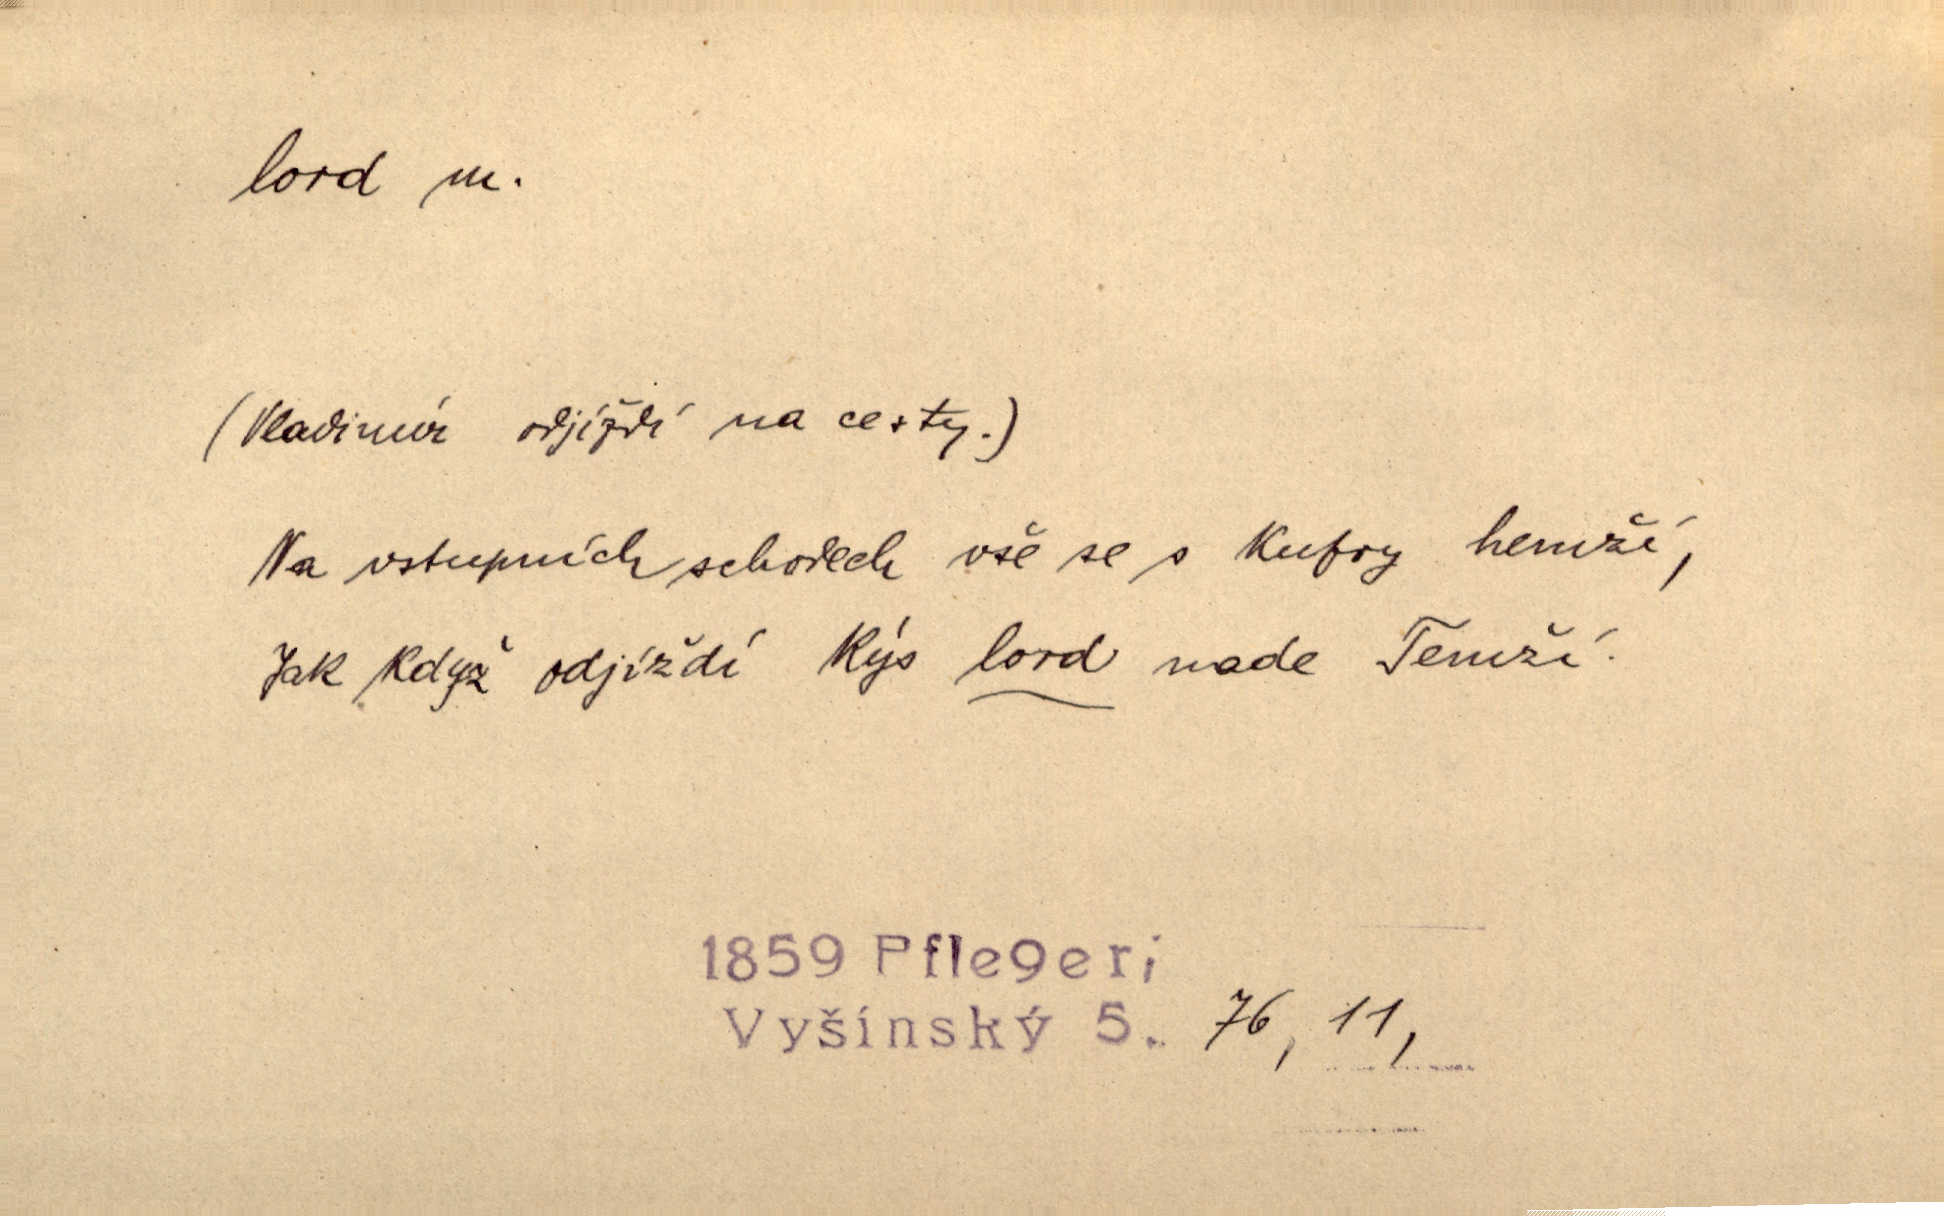 lord m.
(Vladimír odjíždí na cesty.)
Na vstupních schodech vše se s kufry hemží,
Jak když odjíždí kýs lord nade Temží.
1859 Pfleger;
Vyšínský 5. 76, 11,